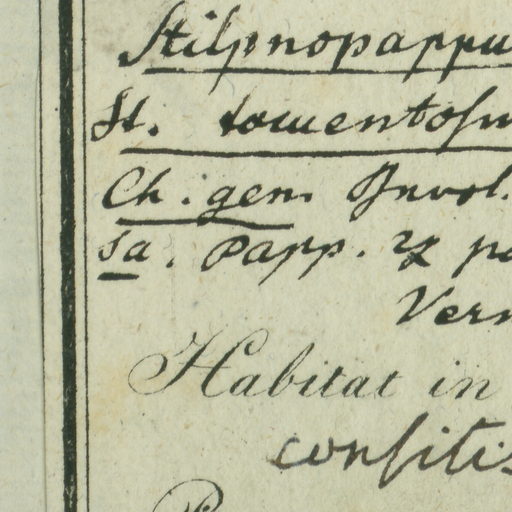 Stilpnopappu
St. tomentosu
Ch. gen. Invol.
Sa. Papp. 2x pa
Vern
Habitat in
consitis